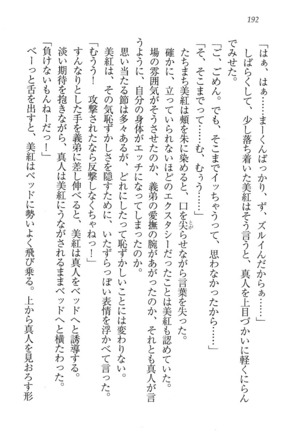 192
「はぁ、はぁ……まーくんばっかり、ず、ズルイんだからぁ……」
しばらくして、少し落ち着いた美紅はそう言うと、真人を上目づかいに軽くにらん
でみせた。
「ご、ごめん。でも、そこまでイッちゃうって、思わなかったから……」
「そ、そこまでって……む、むぅう……」
たちまち美紅は頬を朱に染め、口を尖らせながら言葉を失った。
確かに、立っていられないほどのエクスタシーだったことは美紅も認めていた。
場の雰囲気がそうさせたのか、義弟の愛撫の腕があがったのか、それとも真人が言
うように、自分の身体がエッチになってしまったのか。
思い当たる節は多々あるが、どれにしたって恥ずかしいことには変わりない。
美紅は、その気恥ずかしさを隠すために、いたずらっぽい表情を浮かべて言った。
「むうう！　攻撃されたなら反撃しなくちゃねっ！」
美紅は両手を義弟に差し伸べると、真人をベッドへと誘導する。
淡い期待を抱きながら、真人は美紅にうながされるままベッドへと横たわった。
「負けないもんねーだっ！」
べーっと舌を出すと、美紅はベッドに勢いよく飛び乗る。上から真人を見おろす形